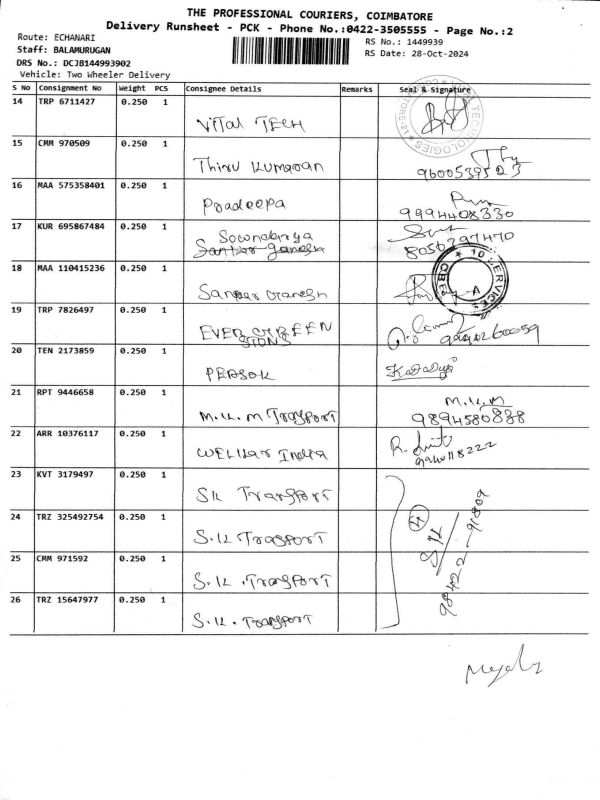 THE PROFESSIONAL COURIERS, COIMBATORE
Delivery Runsheet - PCK - Phone No.:0422-3505555 - Page No.:2
Route: ECHANARI
RS No.: 1449939
Staff: BALAMURUGAN
RS Date: 28-Oct-2024
DRS No.: DCJB144993902
Vehicle: Two Wheeler Delivery
S No Consignment No Weight PCS Consignee Details Remarks Seal & Signature
14 TRP 6711427 0.250 1 VITAL TECH
15 CMM 970509 0.250 1 Thiru Kumaran 9600539523
16 MAA 575358401 0.250 1 Pradeepa 9994408330
17 KUR 695867484 0.250 1 Sowndarya 8056297470
18 MAA 110415236 0.250 1 Sankar Ganesh
19 TRP 7826497 0.250 1 EVER GREEN SIGNS 9940260059
20 TEN 2173859 0.250 1
21 RPT 9446658 0.250 1 M.K.M Trasport M.K.M 9894580838
22 ARR 10376117 0.250 1 India 9940118222
23 KVT 3179497 0.250 1 SK Transport
24 TRZ 325492754 0.250 1 S.K Trasport
25 CMM 971592 0.250 1 S.K. Trasport
26 TRZ 15647977 0.250 1 S.K. Trasport
4
S/K
98422-91809